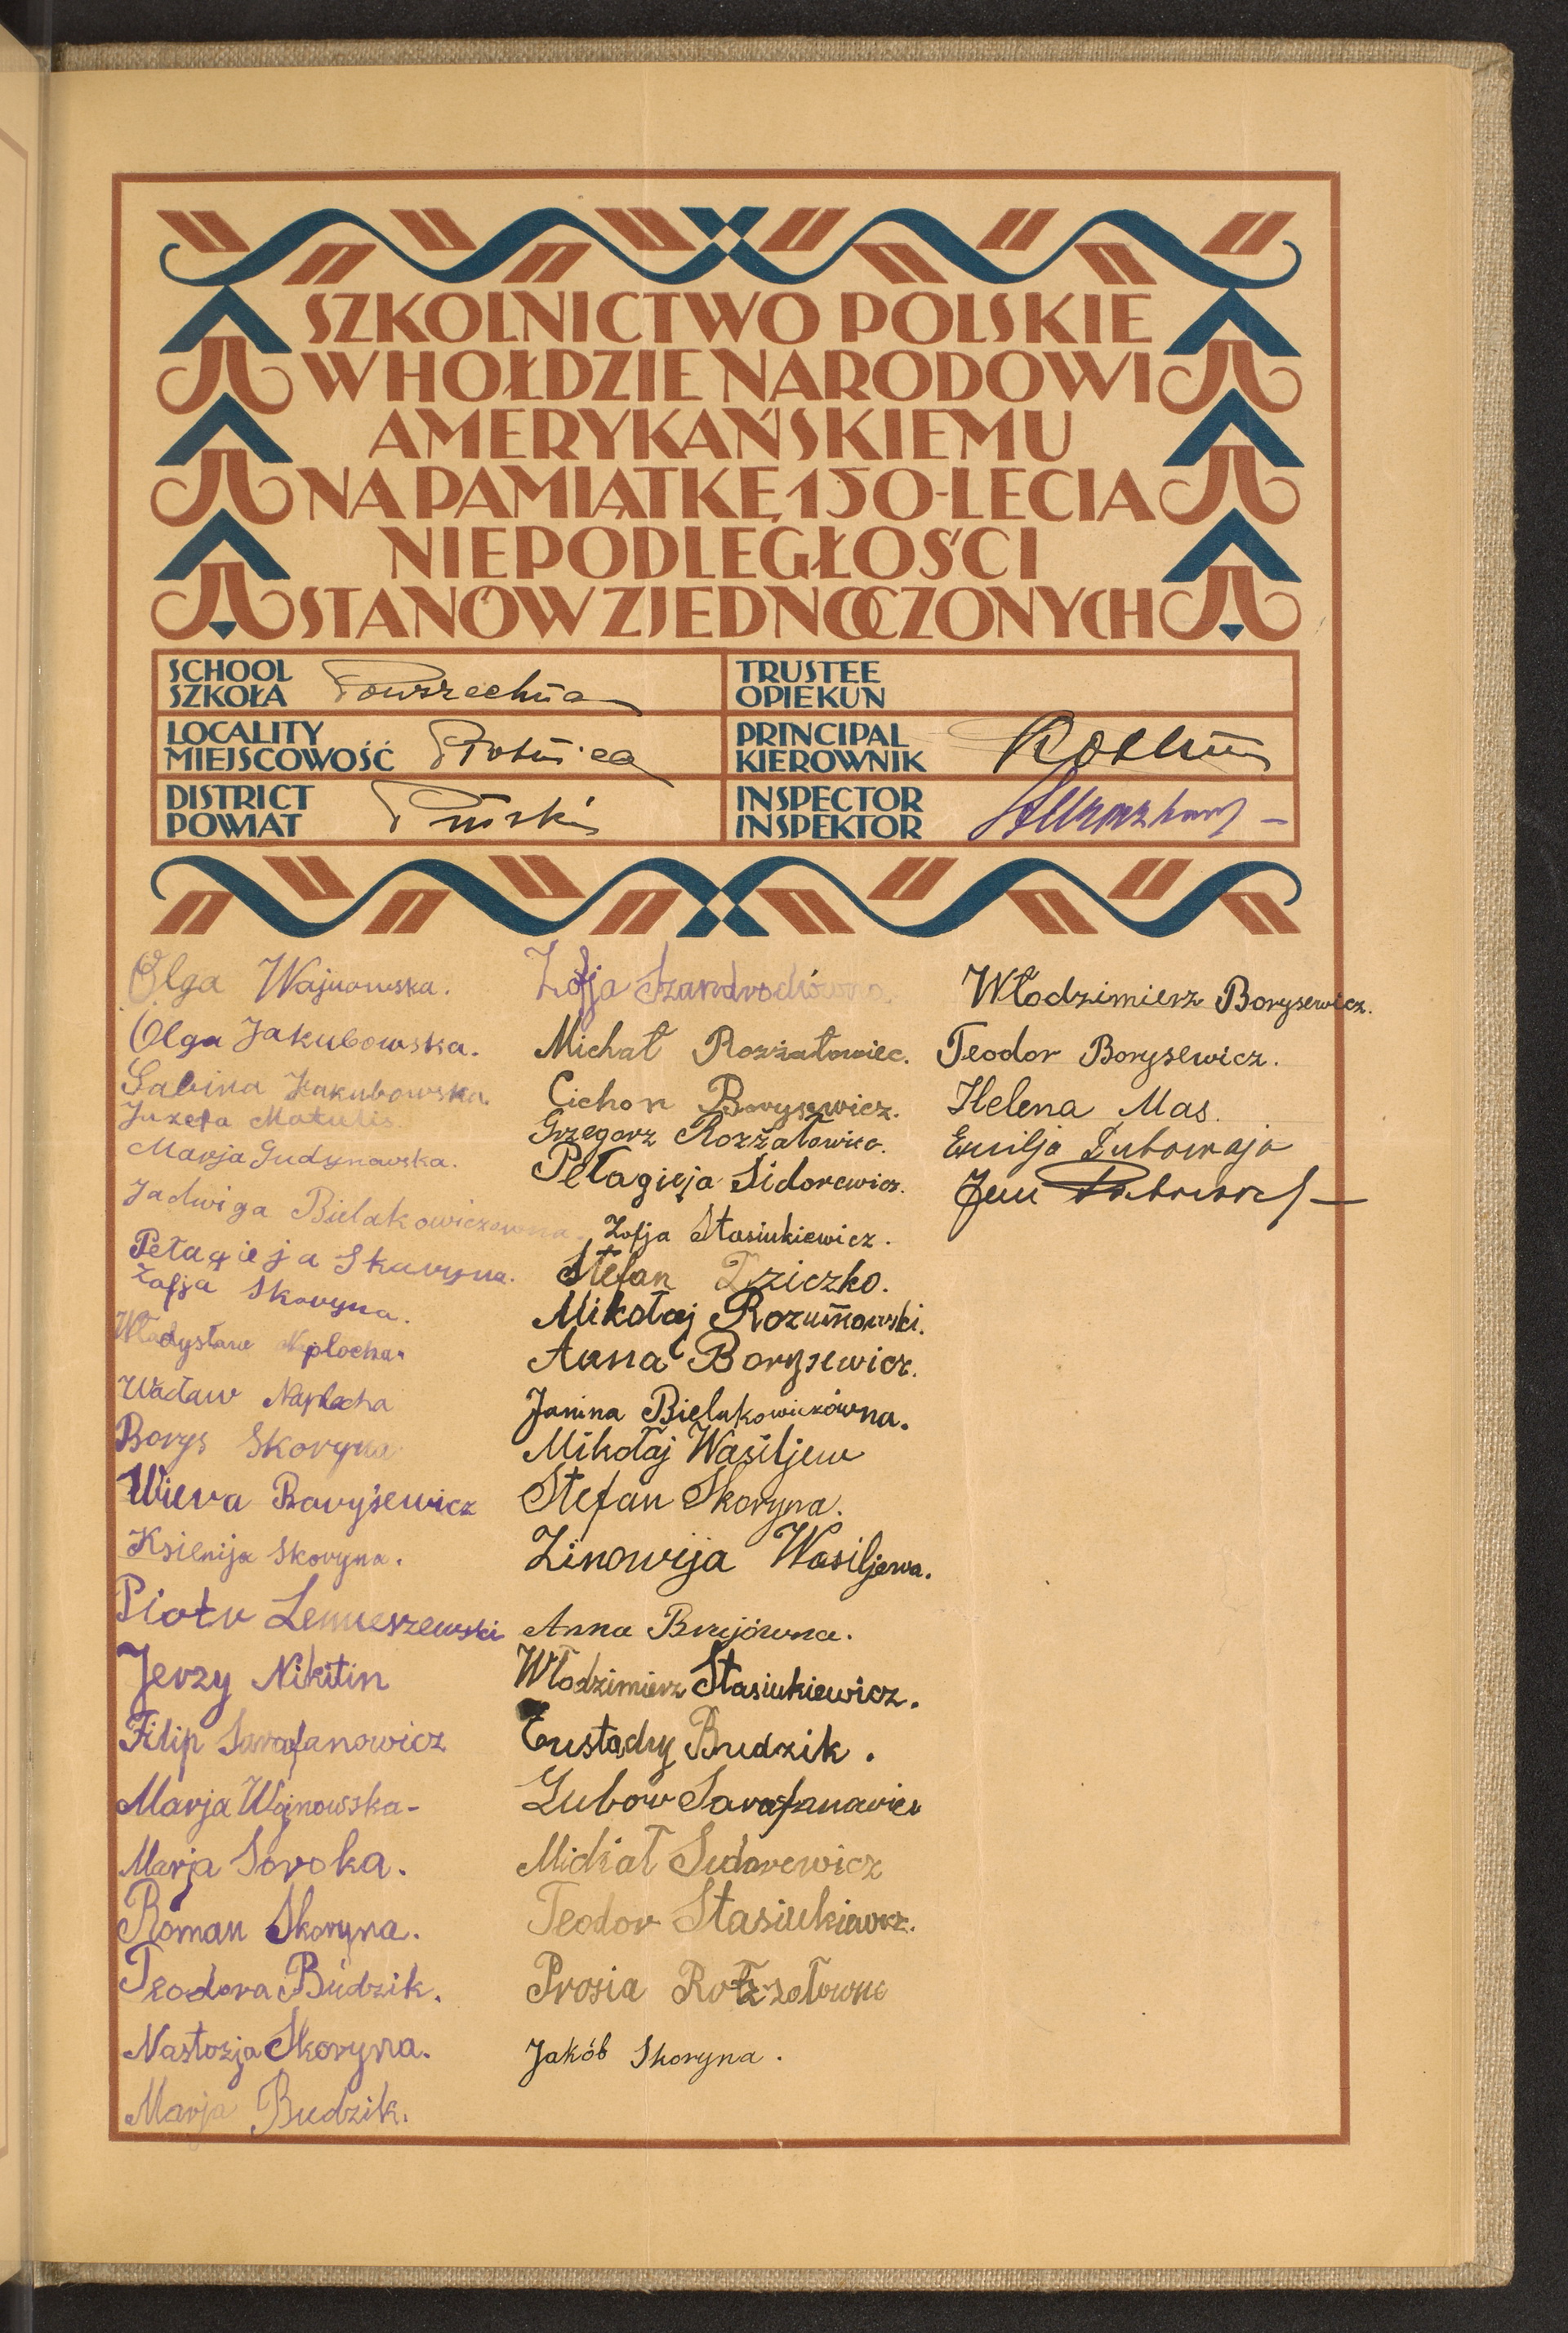 SZKOLNICTWO POLSKIE
W HOŁDZIE NARODOWI
AMERYKAŃSKIEMU
NA PAMIĄTKĘ 150-LECIA
NIEPODLEGŁOŚCI
STANÓW ZJEDNOCZONYCH
SCHOOL
SZKOŁA Powszechna
LOCALITY
MIEJSCOWOŚĆ
DISTRICT
POWIAT Piński
TRUSTEE
OPIEKUN
PRINCIPAL
KIEROWNIK
INSPECTOR
INSPEKTOR
Olga Wajnowska.
Olga Jakubowska.
Sabina Jakubowska.
Juzefa Matulis
Marja Gudynowska.
Jadwiga Bielakowiczewna.
Pełagieja Skoryna.
Zofja Skoryna.
Władysław Naplocha.
Wacław Naplocha
Borys Skoryna
Wiera Borysewicz
Ksienija Skoryna.
Piotr Lemieszewski
Jerzy Nikitin
Filip Sarafanowicz
Marja Wojnowska-
Marja Soroka.
Roman Skoryna.
Teodora Budzik.
Nastozja Skoryna.
Marja Budzik.
Zofja
Michał Rozżałowiec.
Cichon Borysewicz.
Grzegorz Rozżałowiec.
Pełagieja Sidorewicz.
Zofja Stasiukiewicz.
Stefan Dziczko.
Mikołaj Rozumowski.
Anna Borysewicz.
Janina Bielakowiczówna.
Mikołaj Wasiljew
Stefan Skoryna.
Zinowija Wasiljewa.
Anna Brejówna.
Włodzimierz Stasiukiewicz.
Eustachy Budzik.
Lubow Sarafanowicz
Michał Sidorewicz
Teodor Stasiukiewicz.
Prosia
Jakób Skoryna.
Włodzimierz Borysewicz.
Teodor Borysewicz.
Helena Mas.
Emilja
Jan